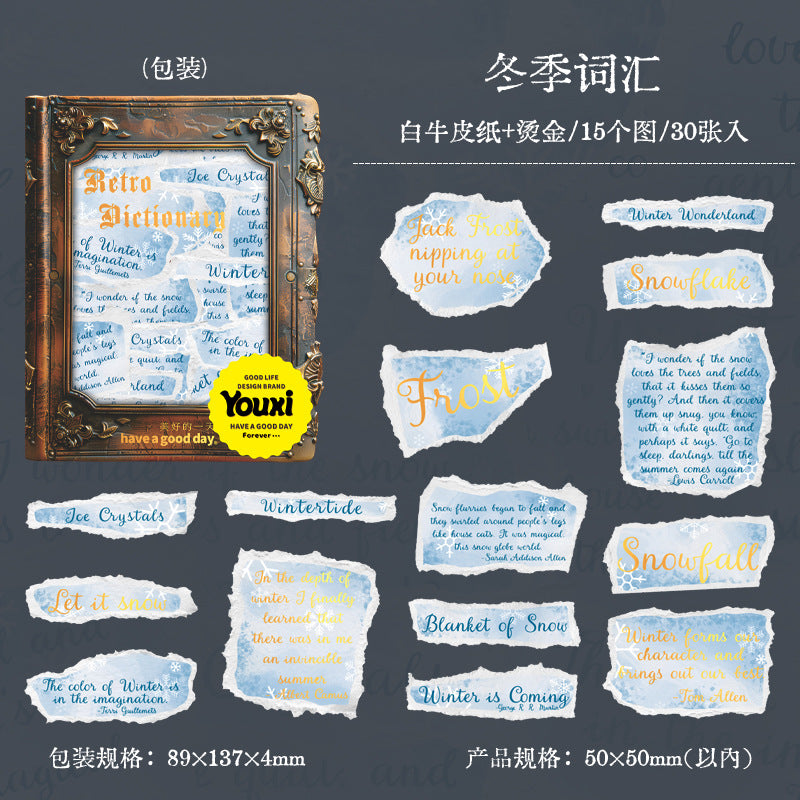 (包装)
冬季词汇
白牛皮纸+烫金/15个图/30张入
George R. R. Martin
Retro
Dictionary
Ice Crystal
of Winter is
imagination.
Terri Guillemets
loves t
that
gently?
them
Winter
"I wonder if the snow
loves t es and fields,
swirle
house
this s
sleep
summer
fall and
people's legs
is magical.
world.
Addison Allen
Crystals
t quilt, and
rland
The color of
in the i
GOOD LIFE
DESIGN BRAND
Youxi
HAVE A GOOD DAY
Forever ...
美好的一天
have a good day.
Jack Frost
nipping at
your nose
Winter Wonderland
Snowflake
Frost
"I wonder if the snow
loves the trees and fields,
that it kisses them so
gently? And then it covers
them up snug, you know,
with a white quilt; and
perhaps it says, "Go to
sleep, darlings, till the
summer comes again
-Lewis Carroll
Ice Crystals
Wintertide
Snow flurries began to fall and
they swirled around people's legs
like house cats. It was magical,
this snow globe world.
-Sarah Addison Allen
Snowfall
Let it snow
In the depth of
winter I finally
learned that
there was in me
an invincible
summer.
Albert Camus
Blanket of Snow
Winter forms our
character and
brings out our best
Tom Allen
The color of Winter is
in the imagination.
-Terri Guillemets
Winter is Coming
George R. R. Martin
包装规格：89×137×4mm
产品规格：50×50mm(以内)